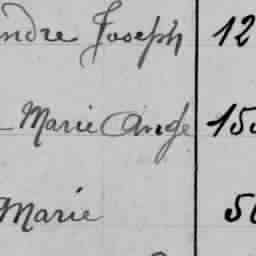 ndre Joseph 12
Marie Ange 15
Marie 5